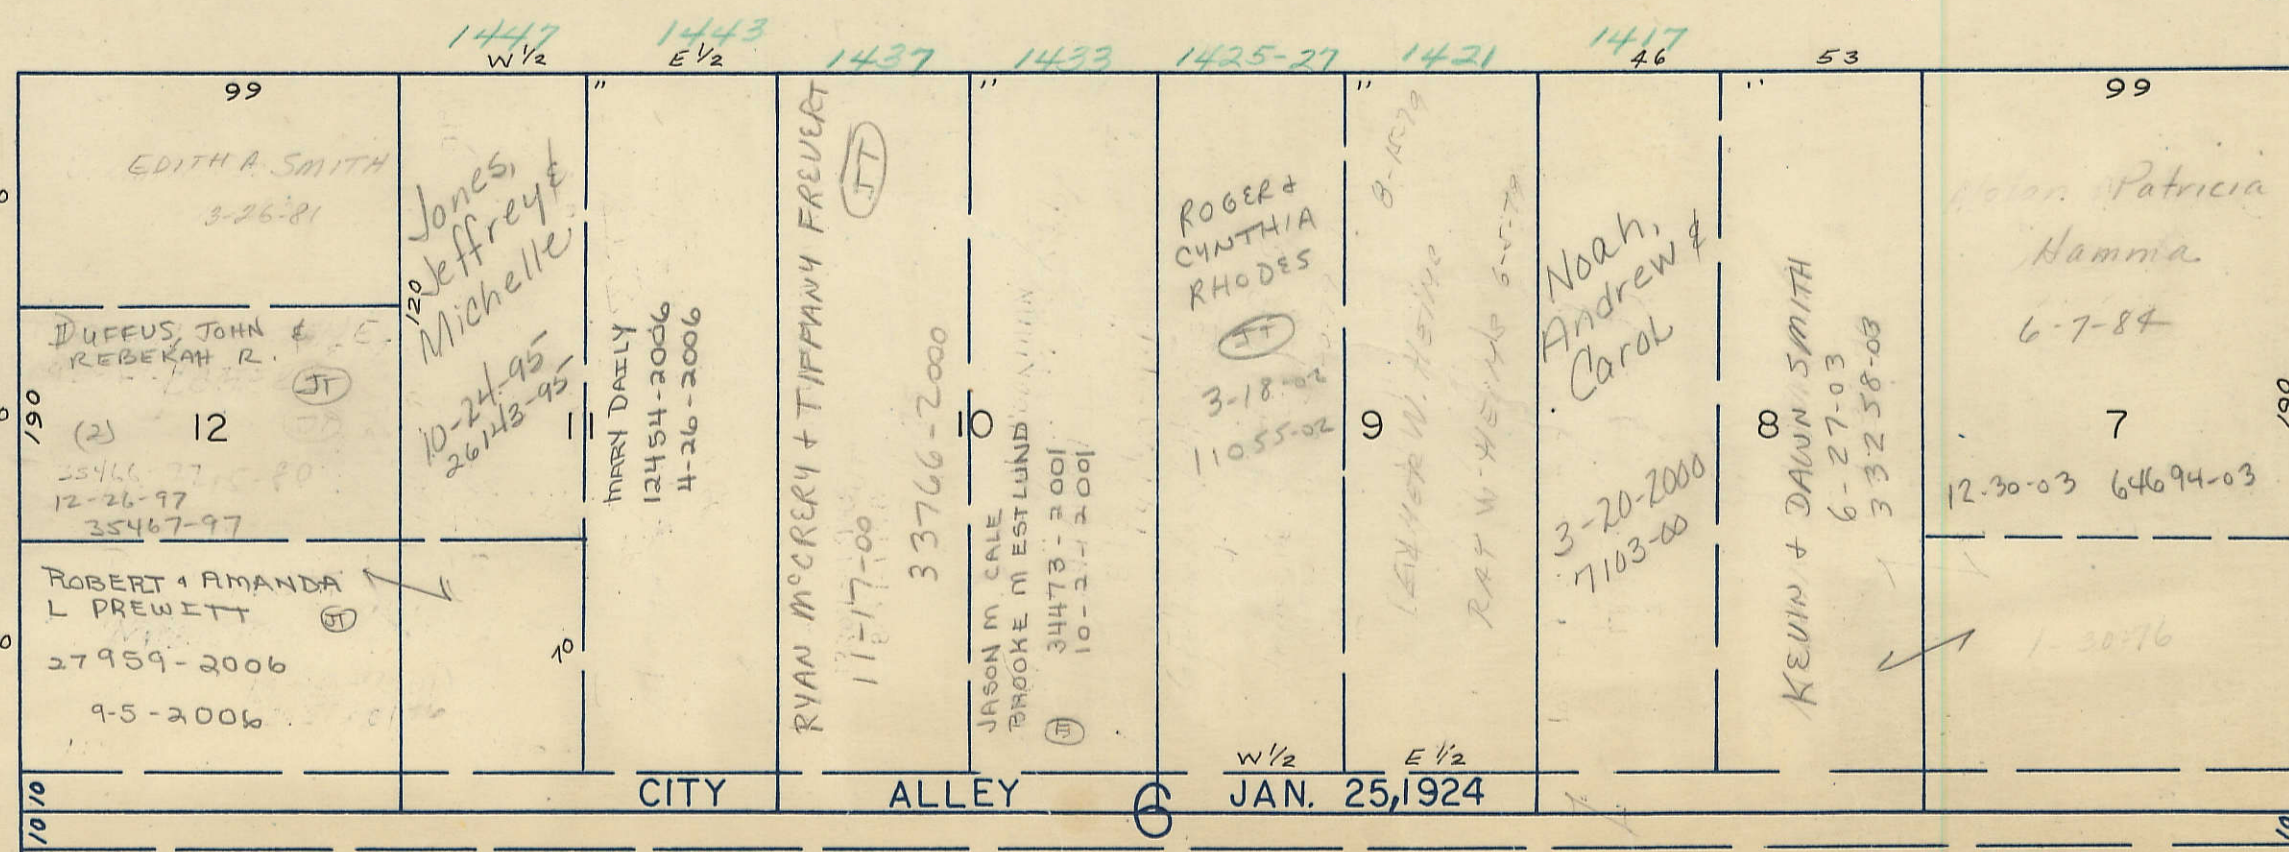 1447
W 1/2
1443
E 1/2
1437
1433
1425-27
1421
1417
46
53
99
"
"
"
"
99
EDITH A. SMITH
3-26-81
DUFFUS, JOHN & E.
REBEKAH R.
JT
190
(2)
12
12-26-97
35467-97
ROBERT & AMANDA
L PREWITT
JT
27959-2006
9-5-2006
Jones,
Jeffrey &
Michelle
120
10-24-95
26143-95
11
70
MARY DAILY
12454-2006
4-26-2006
RYAN McCRERY + TIFFANY FREVERT
JT
11-17-00
33766-2000
10
JASON M CALE
BROOKE M ESTLUND
34473-2001
10-2-2001
JT
ROGER &
CYNTHIA
RHODES
JT
3-18-02
11055-02
W 1/2
9
8-15-79
RAY W.
6-5-79
E 1/2
Noah,
Andrew &
Carol
3-20-2000
7103-00
8
KEVIN + DAWN SMITH
6-27-03
33258-03
Patricia
Hamma
6-7-84
7
190
12-30-03 64694-03
1-30-76
CITY ALLEY 6 JAN. 25, 1924
10
10
10